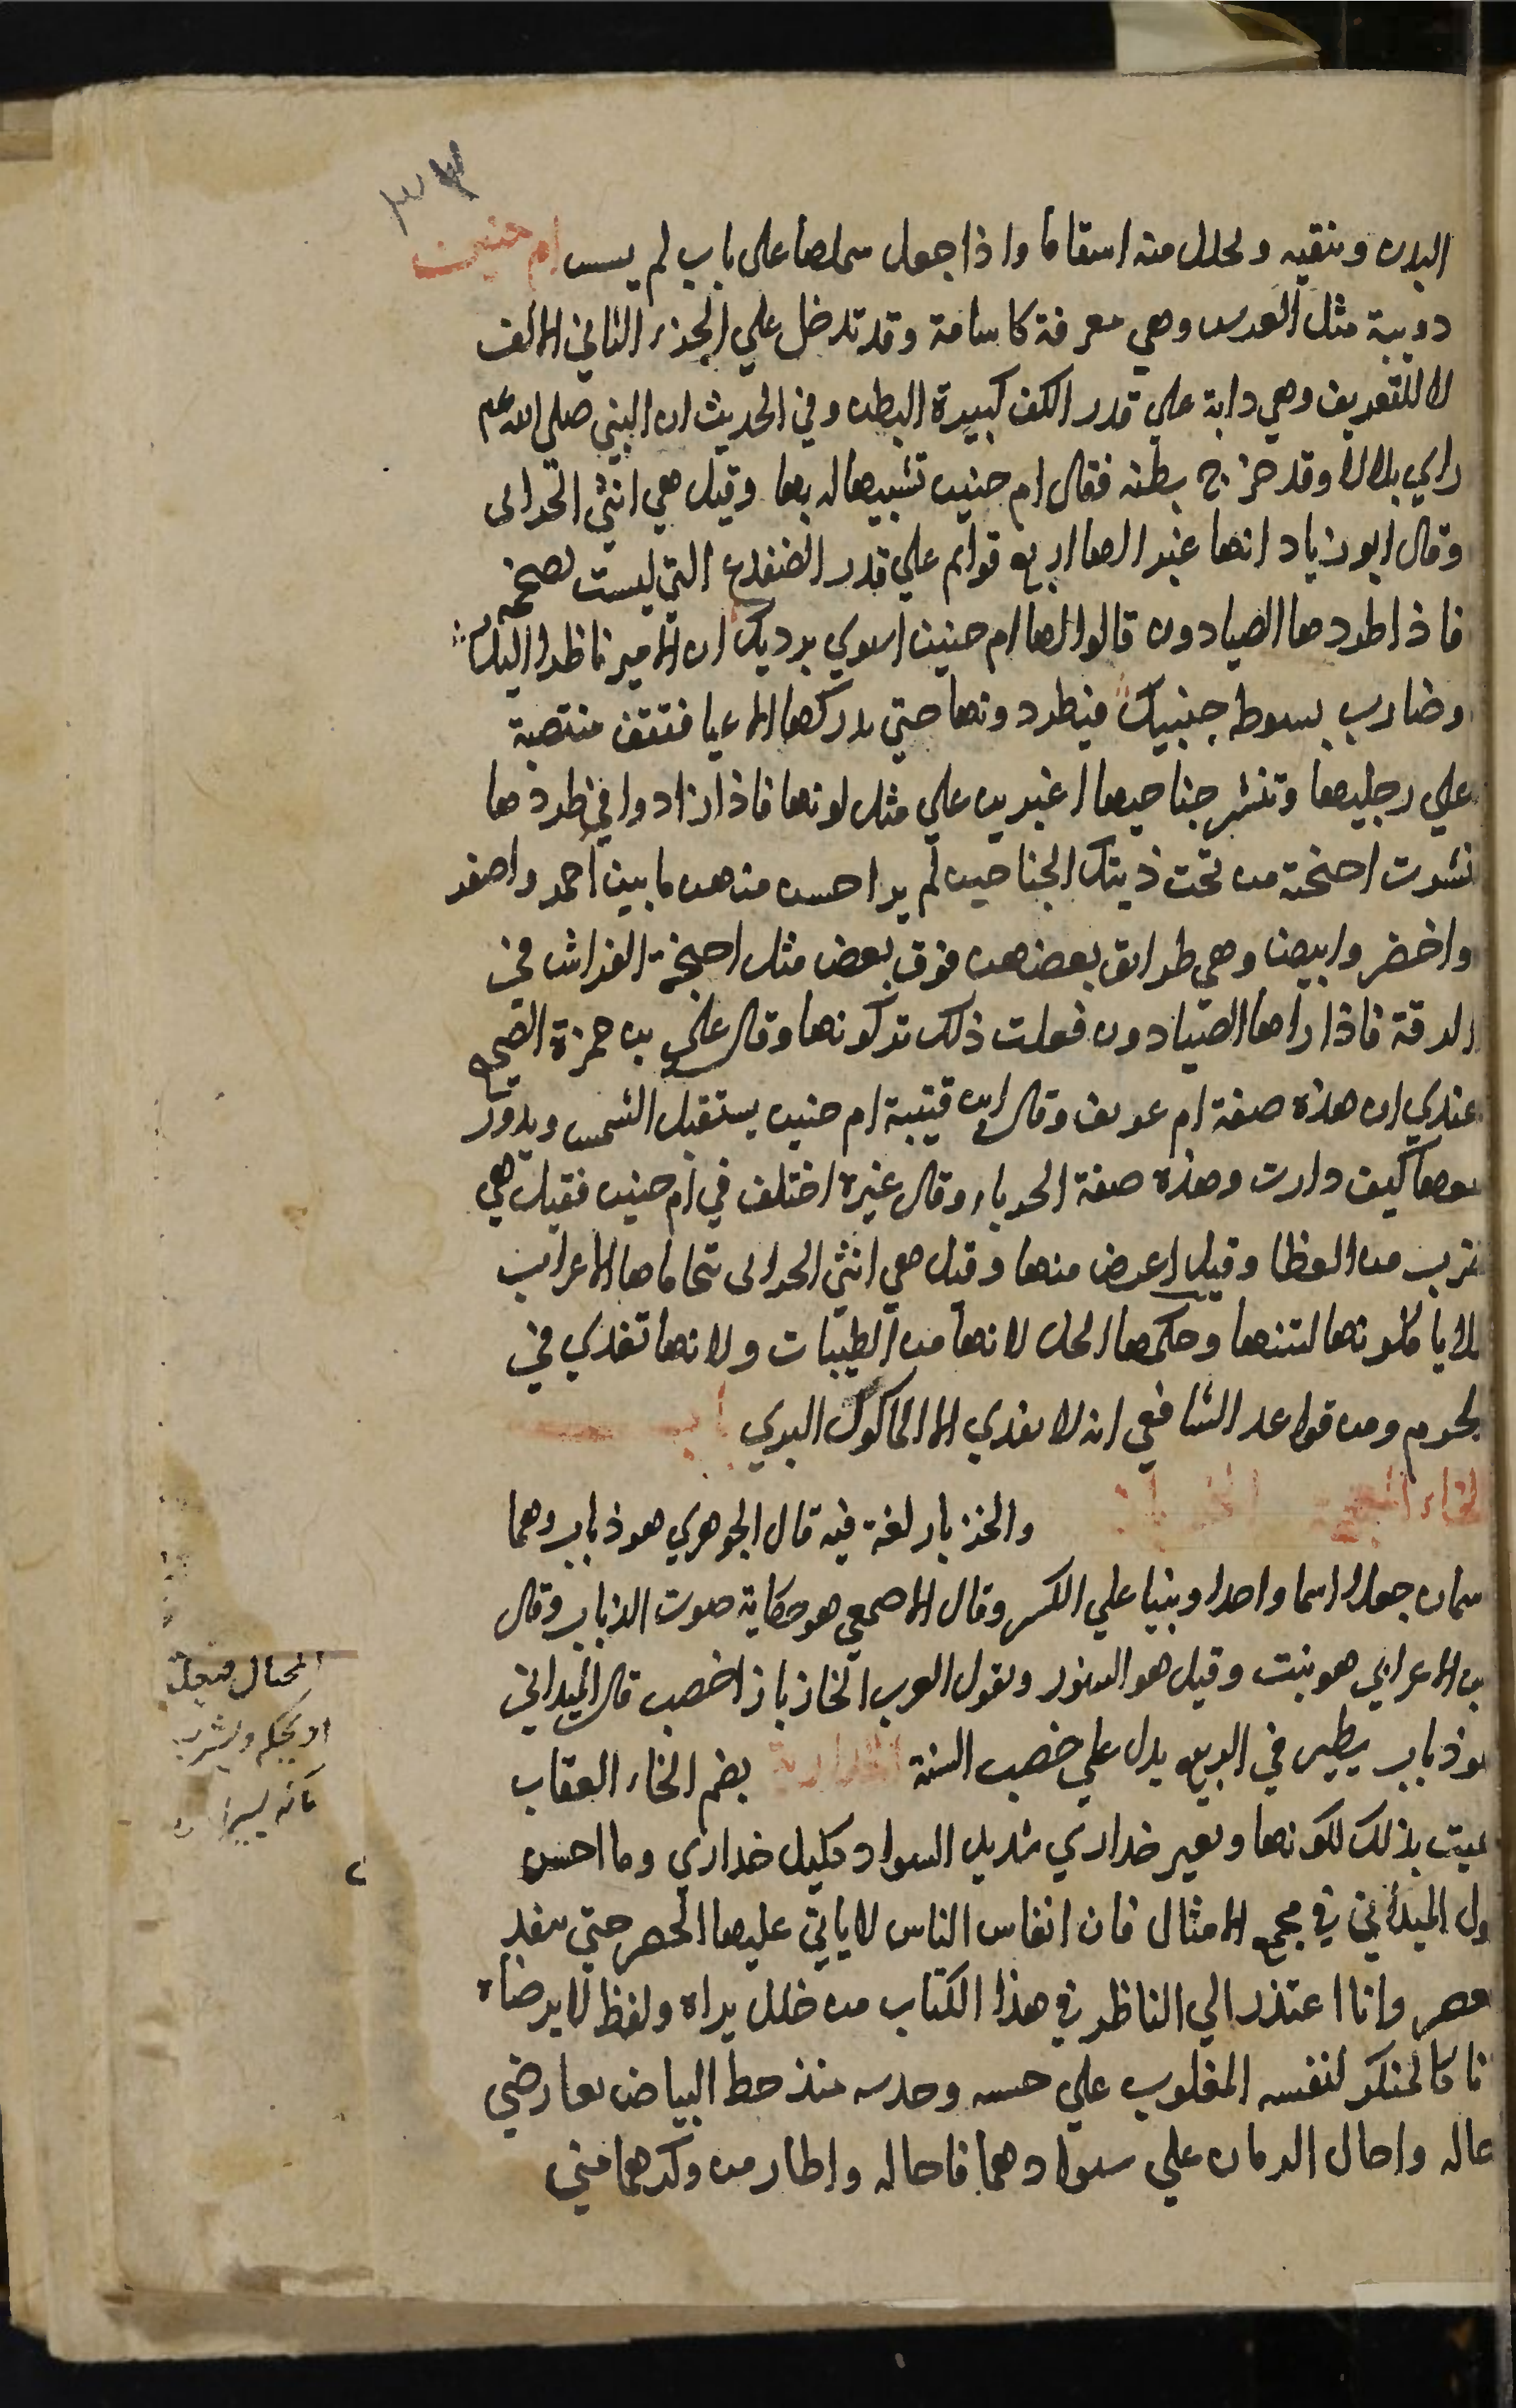 البدن وينقيه ويحلل منه اسقاما واذا جعل سلخها على باب لم يسس ام حنين
دويبة مثل العرس وهي معرفة كاسامة وقد تدخل علي الجزء الثاني الالف
لا للتعريف وهي دابة علي قدر الكف كبيرة البطن وفي الحديث ان النبي صلى الله عم
راي بلالا وقد خرج بطنه فقال ام حنين تشبيها له بها وقيل هي انثى الحرابى
وقال ابو زياد انها غبرا لها اربع قوايم علي قدر الضفدع التي ليست بضخمة
فاذا طردها الصيادون قالوا لها ام حنين انشري برديك ان الامير ناظر اليك
وضارب بسوط جنبيك فيطردونها حتي يدركها الاعيا فتقف منتصبة
علي رجليها وتنشر جناحيها اغبرين علي مثل لونها فاذا زادوا في طردها
نشرت اجنحة من تحت ذينك الجناحين لم ير احسن منهن ما بين احمر واصفر
واخضر وابيض وهي طرايق بعضهن فوق بعض مثل اجنحة الفراش في
الدقة فاذا راها الصيادون فعلت ذلك تركونها وقال علي بن حمزة الصحيح
عندي ان هذه صفة ام عويف وقال ابن قتيبة ام حنين يستقبل الشمس ويدور
معها كيف دارت وهذه صفة الحرباء وقال غيره اختلف في ام حنين فقيل هي
ضرب من العظا وقيل اعرض منها وقيل هي انثى الحرابى تتحاماها الاعراب
لا ياكلونها لنتنها وحكمها الحل لانها من الطيبات ولانها تفدي في
لحرم ومن قواعد الشافعي انه لا يفدي الا الماكول البري
الخاء المعجمة والخزباز لغة فيه قال الجوهري هو ذباب وهما
سمان جعلا اسما واحدا وبنيا علي الكسر وقال الاصمعي هو حكاية صوت الذباب وقال
بن الاعرابي هو نبت وقيل هو السنور وتقول العرب الخازباز اخصب قال الميداني
هو ذباب يطير في الربيع يدل علي خصب السنة الخدارية بضم الخاء العقاب
سميت بذلك للونها وبعير خداري شديد السواد كليل خداري وما احسن
ول الميداني في مجمع الامثال فان انفاس الناس لا ياتي عليها الحصر حتي ينفد
العصر وانا اعتذر الي الناظر في هذا الكتاب من خلل يراه ولفظ لا يرضاه
فانا كالمنكر لنفسه المغلوب علي حسه وحدسه منذ حط البياض بعارضي
حاله واحال الزمان علي سوادهما فاحاله واطار من وكرهما مني
المحال